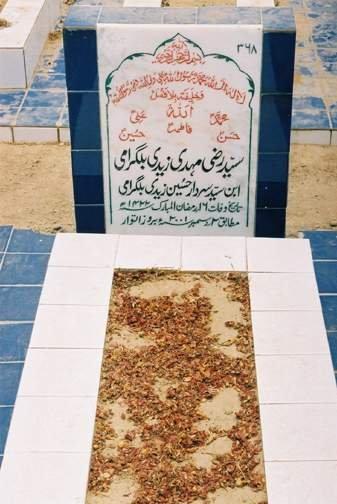 بسم اللہ الرحمن الرحیم
۳۶۸
لا الہ الا اللہ محمد رسول اللہ علی ولی اللہ وصی رسول اللہ
خلیفتہ بلا فصل
محمد اللہ علی
حسن فاطمہ حسین
سید رضی مہدی زیدی بلگرامی
ابن سید سردار حسین زیدی بلگرامی
تاریخ وفات ۱۶ رمضان المبارک ۱۴۲۲ھ
مطابق ۲ دسمبر ۲۰۰۱ء بروز اتوار